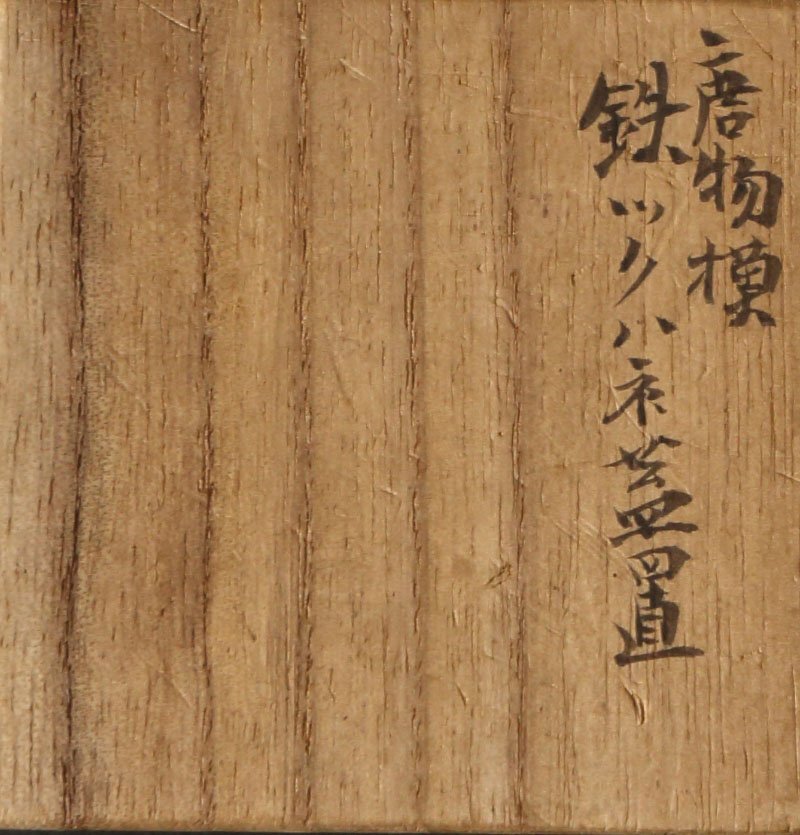 唐物模
鉄ツクハネ蓋置